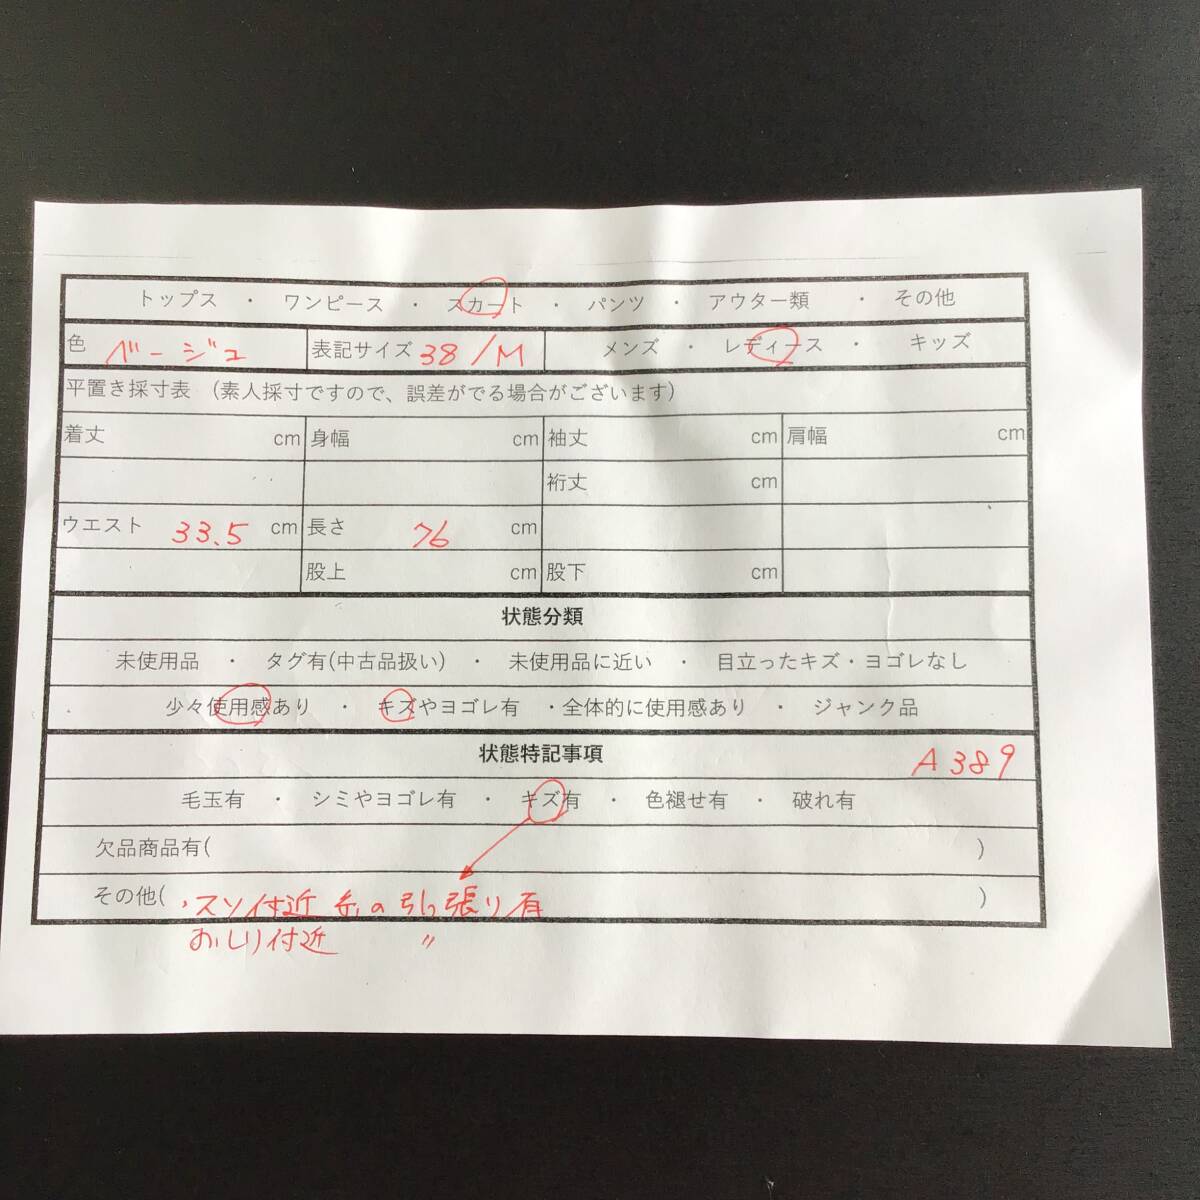 トップス ・ ワンピース ・ スカート ・ パンツ ・ アウター類 ・ その他
色 ベージュ 表記サイズ 38/M メンズ ・ レディース ・ キッズ
平置き採寸表 (素人採寸ですので、誤差がでる場合がございます)
着丈 cm 身幅 cm 袖丈 cm 肩幅 cm
裄丈 cm
ウエスト 33.5 cm 長さ 76 cm
股上 cm 股下 cm
状態分類
未使用品 ・ タグ有(中古品扱い) ・ 未使用品に近い ・ 目立ったキズ・ヨゴレなし
少々使用感あり ・ キズやヨゴレ有 ・全体的に使用感あり ・ ジャンク品
状態特記事項 A389
毛玉有 ・ シミやヨゴレ有 ・ キズ有 ・ 色褪せ有 ・ 破れ有
欠品商品有( )
その他( ・スソ付近 糸の引っ張り有 )
おしり付近 〃